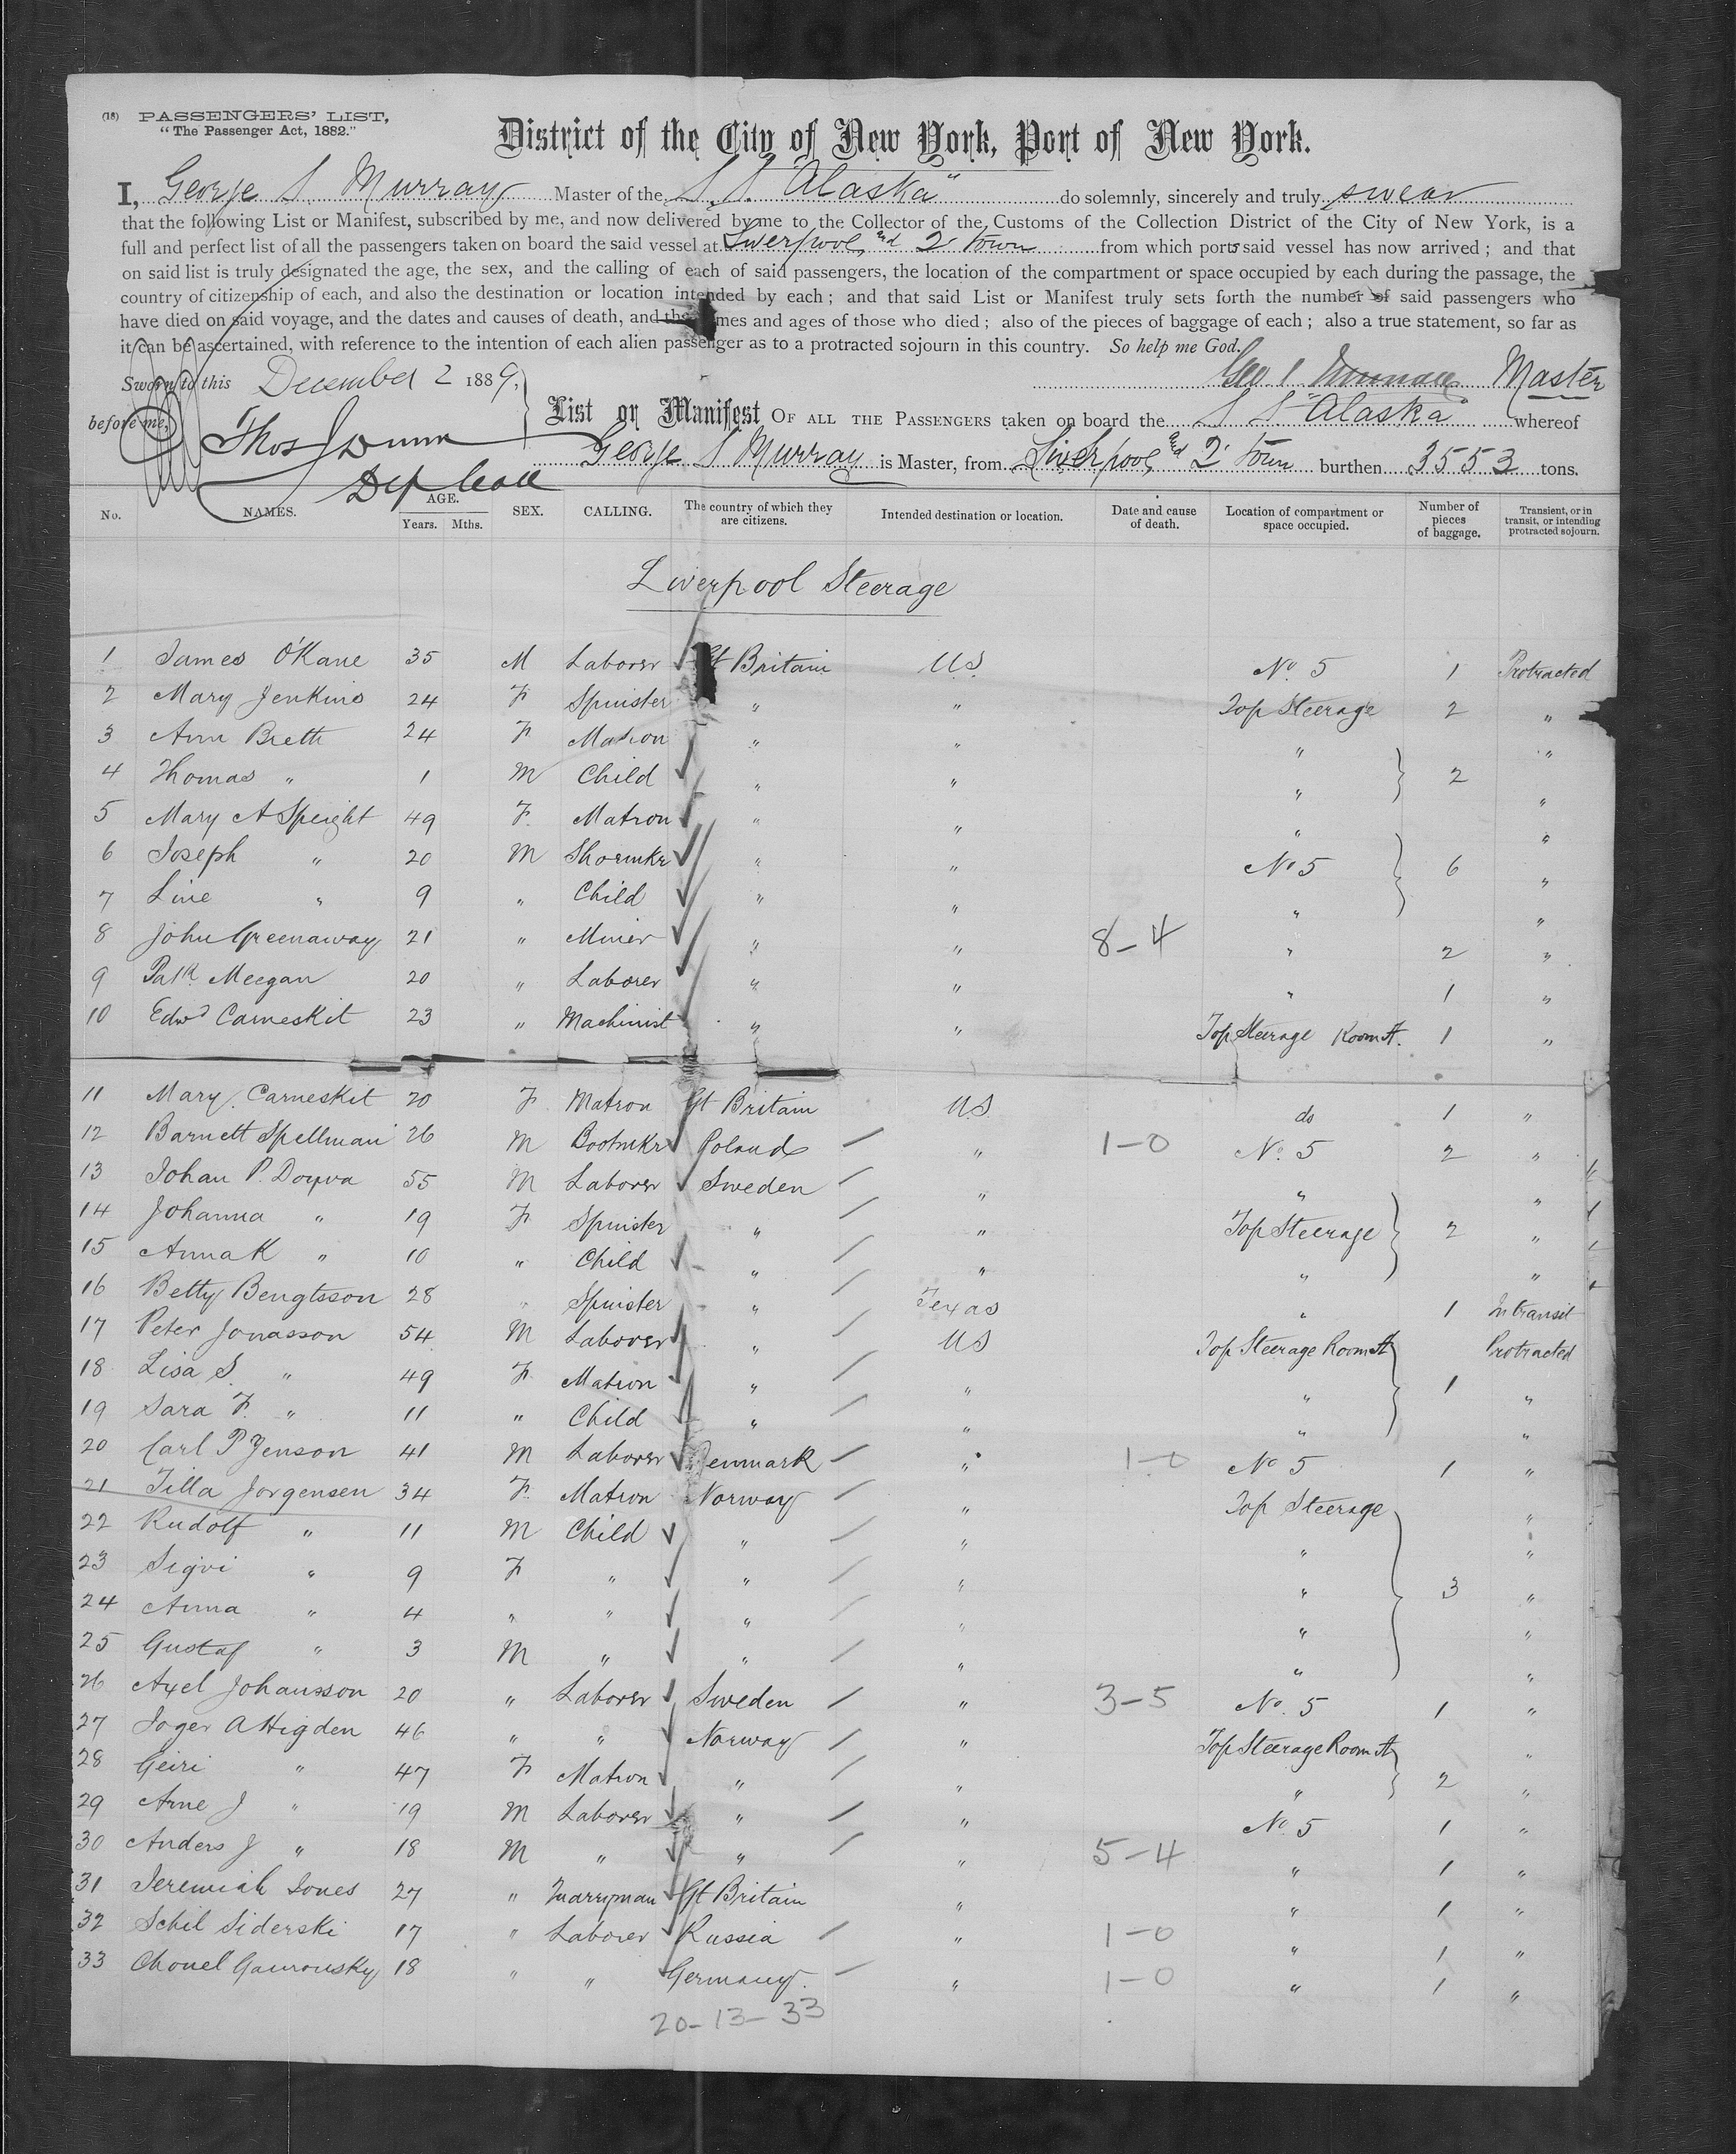 (18) PASSENGERS' LIST,
"The Passenger Act, 1882."
District of the City of New York, Port of New York.
I, George S. Murray Master of the S.S. "Alaska" do solemnly, sincerely and truly swear
that the following List or Manifest, subscribed by me, and now delivered by me to the Collector of the Customs of the Collection District of the City of New York, is a
full and perfect list of all the passengers taken on board the said vessel at Liverpool and 2' town from which ports said vessel has now arrived; and that
on said list is truly designated the age, the sex, and the calling of each of said passengers, the location of the compartment or space occupied by each during the passage, the
country of citizenship of each, and also the destination or location intended by each; and that said List or Manifest truly sets forth the number of said passengers who
have died on said voyage, and the dates and causes of death, and the names and ages of those who died; also of the pieces of baggage of each; also a true statement, so far as
it can be ascertained, with reference to the intention of each alien passenger as to a protracted sojourn in this country. So help me God.
Sworn to this December 2 1889, Geo. S. Murray Master
before me, Thos J Dunn
Dep Coll
List or Manifest OF ALL THE PASSENGERS taken on board the S S "Alaska" whereof
George S Murray is Master, from Liverpool and 2' town burthen 3553 tons.
No. NAMES. AGE. Years. Mths. SEX. CALLING. The country of which they are citizens. Intended destination or location. Date and cause of death. Location of compartment or space occupied. Number of pieces of baggage. Transient, or in transit, or intending protracted sojourn.
Liverpool Steerage
1 James O'Kane 35 M Laborer Gt Britain U.S. No. 5 1 Protracted
2 Mary Jenkins 24 F Spinster " " Top Steerage 2 "
3 Ann Brett 24 F Matron " " " "
4 Thomas " 1 M Child " " " 2 "
5 Mary A Speight 49 F Matron " " " "
6 Joseph " 20 M Shoemkr " " No 5 6 "
7 Line " 9 " Child " " " "
8 John Greenaway 21 " Miner " " 8-4 " 2 "
9 Patk Meegan 20 " Laborer " " " 1 "
10 Edwd Carneskit 23 " Machinist " " Top Steerage Room A. 1 "
11 Mary Carneskit 20 F Matron Gt Britain U.S. do 1 "
12 Barnett Spellman 26 M Bootmkr Poland " 1-0 No. 5 2 "
13 Johan P. 55 M Laborer Sweden " " "
14 Johanna " 19 F Spinster " " Top Steerage 2 "
15 Anna K " 10 " Child " " " "
16 Betty Bengtsson 28 " Spinster " Texas " 1 In transit
17 Peter Jonasson 54 M Laborer " US Top Steerage Room A Protracted
18 Lisa S. " 49 F Matron " " " 1 "
19 Sara F. " 11 " Child " " " "
20 Carl P Jenson 41 M Laborer Denmark " 1-0 No 5 1 "
21 Tilla Jorgensen 34 F Matron Norway " Top Steerage "
22 Rudolf " 11 M Child " " " "
23 Sigvi " 9 F " " " " 3 "
24 Anna " 4 " " " " " "
25 Gustaf " 3 M " " " " "
26 Axel Johansson 20 " Laborer Sweden " 3-5 No. 5 1 "
27 A Higden 46 " " Norway " Top Steerage Room A "
28 Geiri " 47 F Matron " " " 2 "
29 Arne J " 19 M Laborer " " No. 5 1 "
30 Anders J " 18 M " " " 5-4 " 1 "
31 Jeremiah Jones 27 " Quarryman Gt Britain " " 1 "
32 Schil Siderski 17 " Laborer Russia " 1-0 " 1 "
33 Chonel 18 " " Germany " 1-0 " 1 "
20-13-33